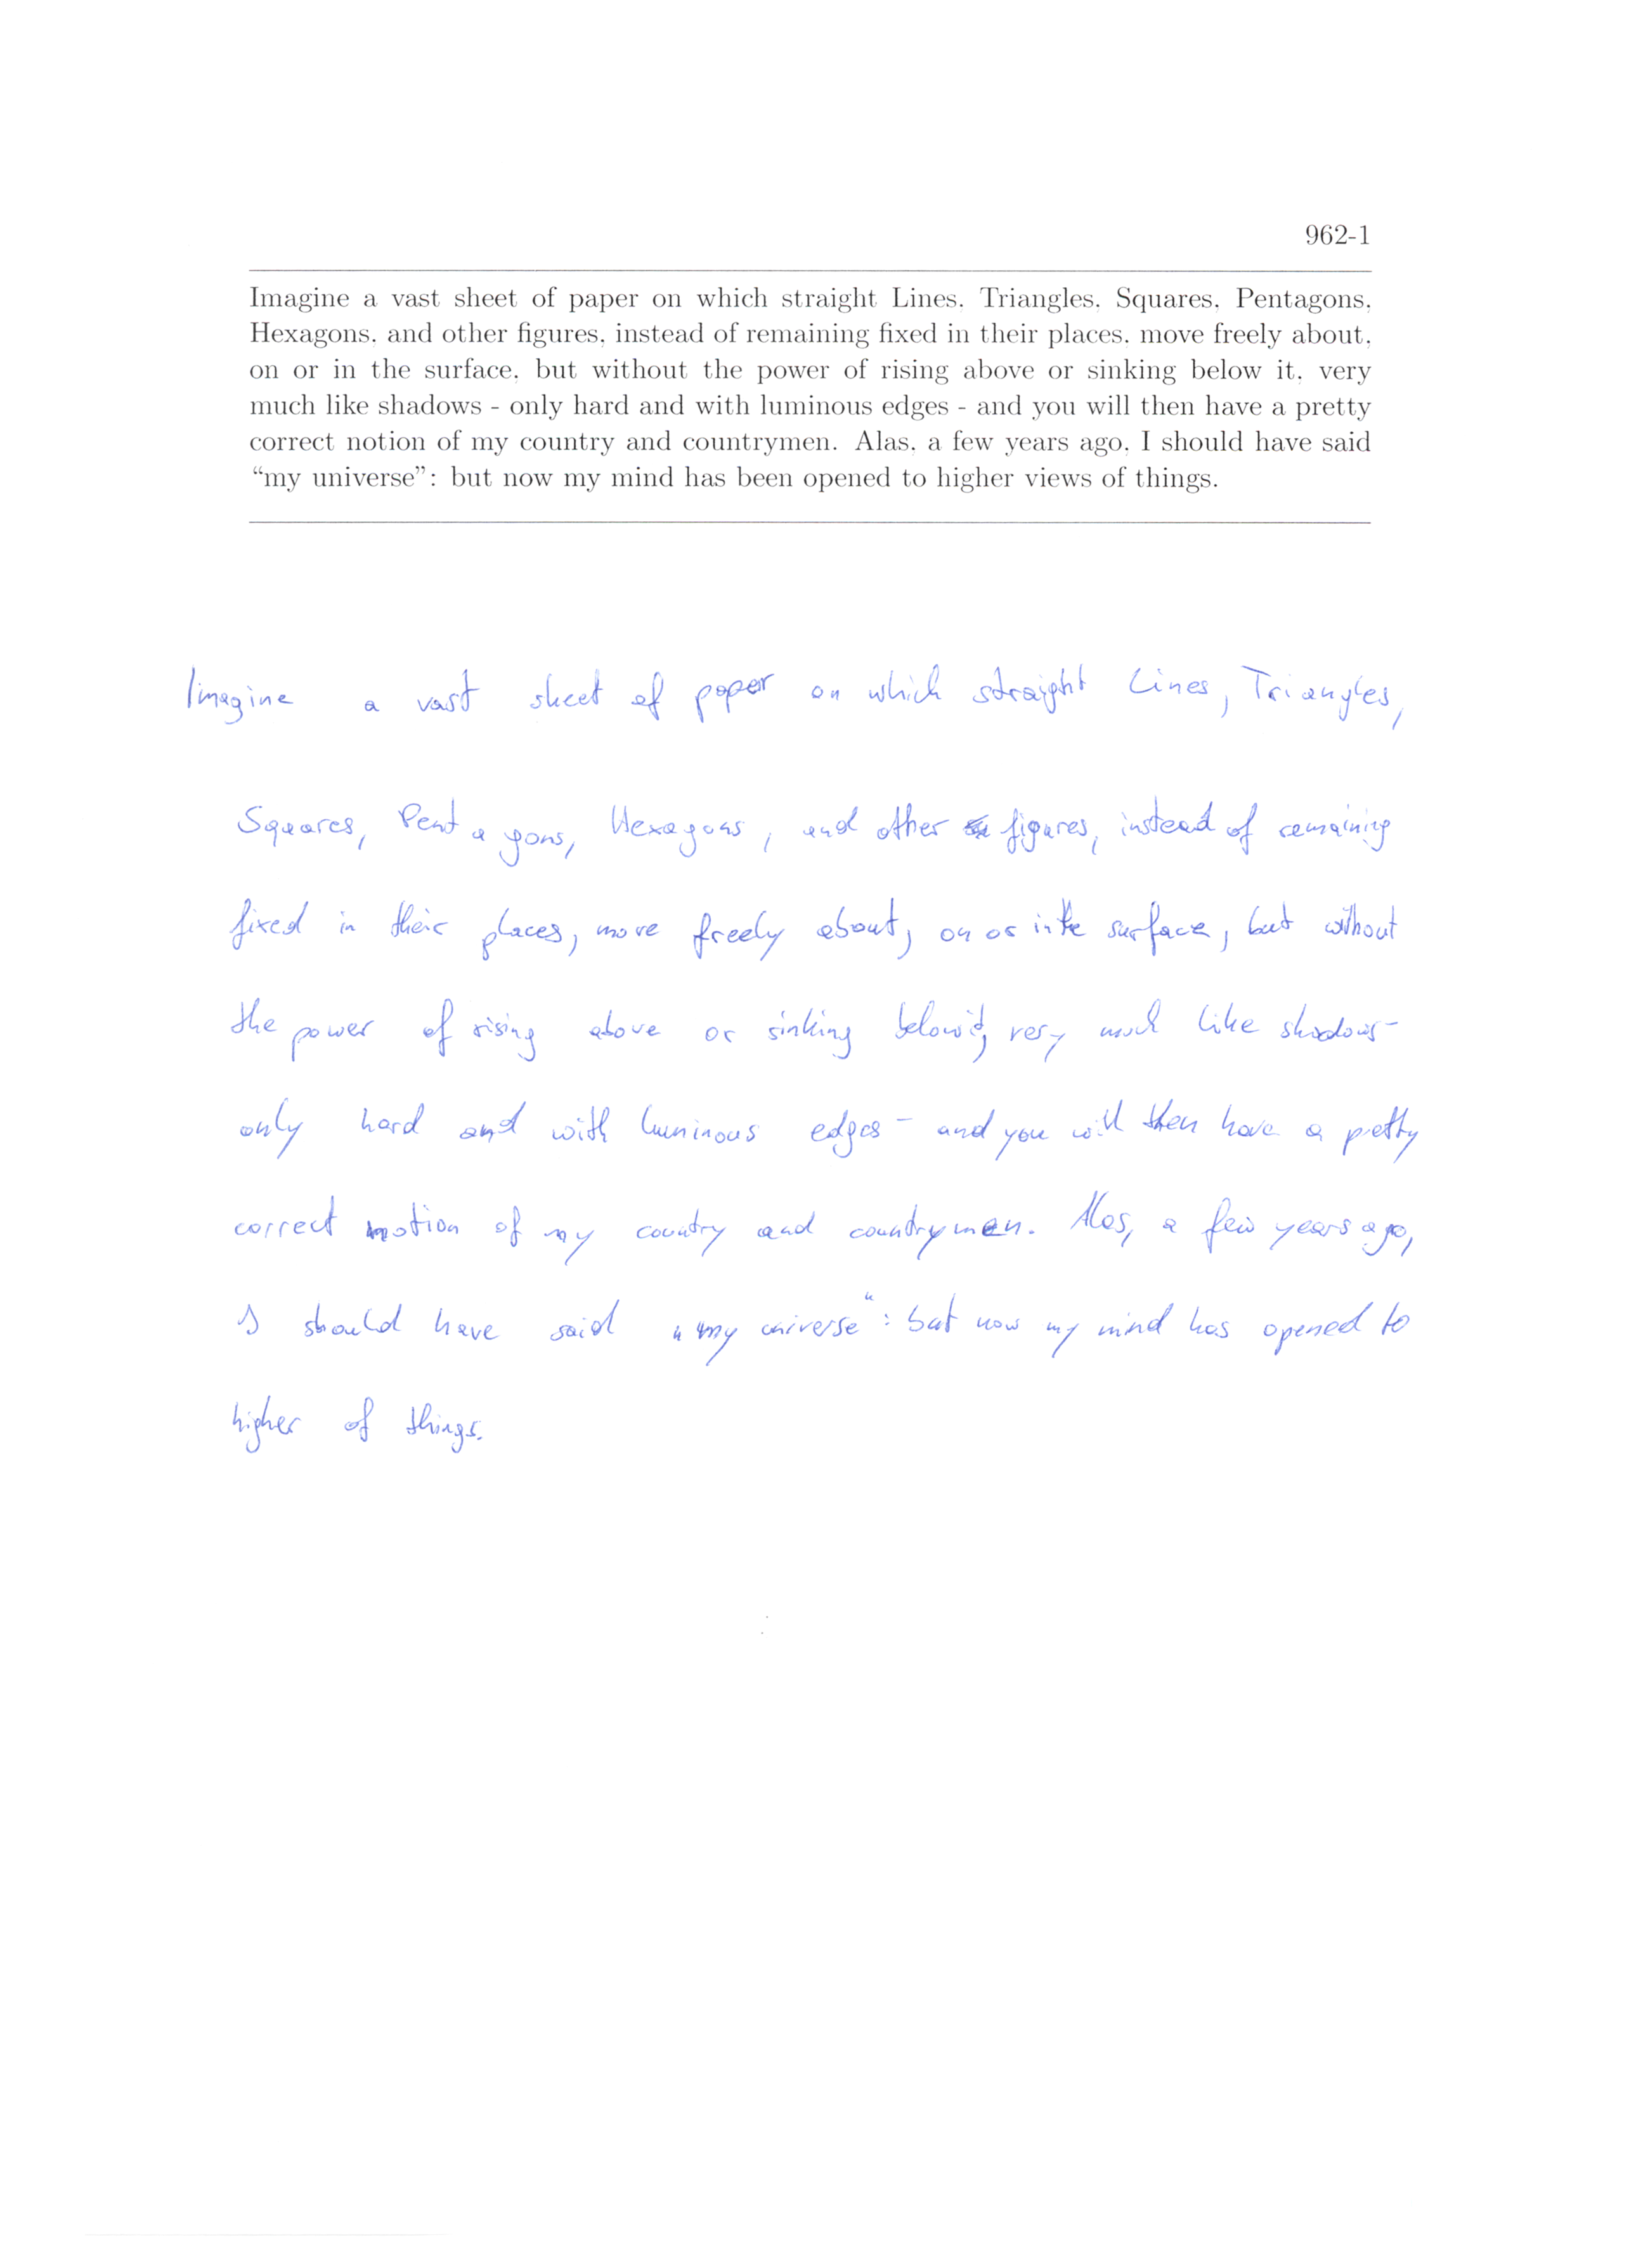 962-1
Imagine a vast sheet of paper on which straight Lines, Triangles, Squares, Pentagons,
Hexagons, and other figures, instead of remaining fixed in their places, move freely about,
on or in the surface, but without the power of rising above or sinking below it, very
much like shadows - only hard and with luminous edges - and you will then have a pretty
correct notion of my country and countrymen. Alas, a few years ago, I should have said
“my universe”: but now my mind has been opened to higher views of things.
Imagine a vast sheet of paper on which straight Lines, Triangles,
Squares, Pentagons, Hexagons, and other figures, instead of remaining
fixed in their places, move freely about, on or in the surface, but without
the power of rising above or sinking below it, very much like shadows -
only hard and with luminous edges - and you will then have a pretty
correct notion of my country and countrymen. Alas, a few years ago,
I should have said „my universe“: but now my mind has opened to
higher of things.